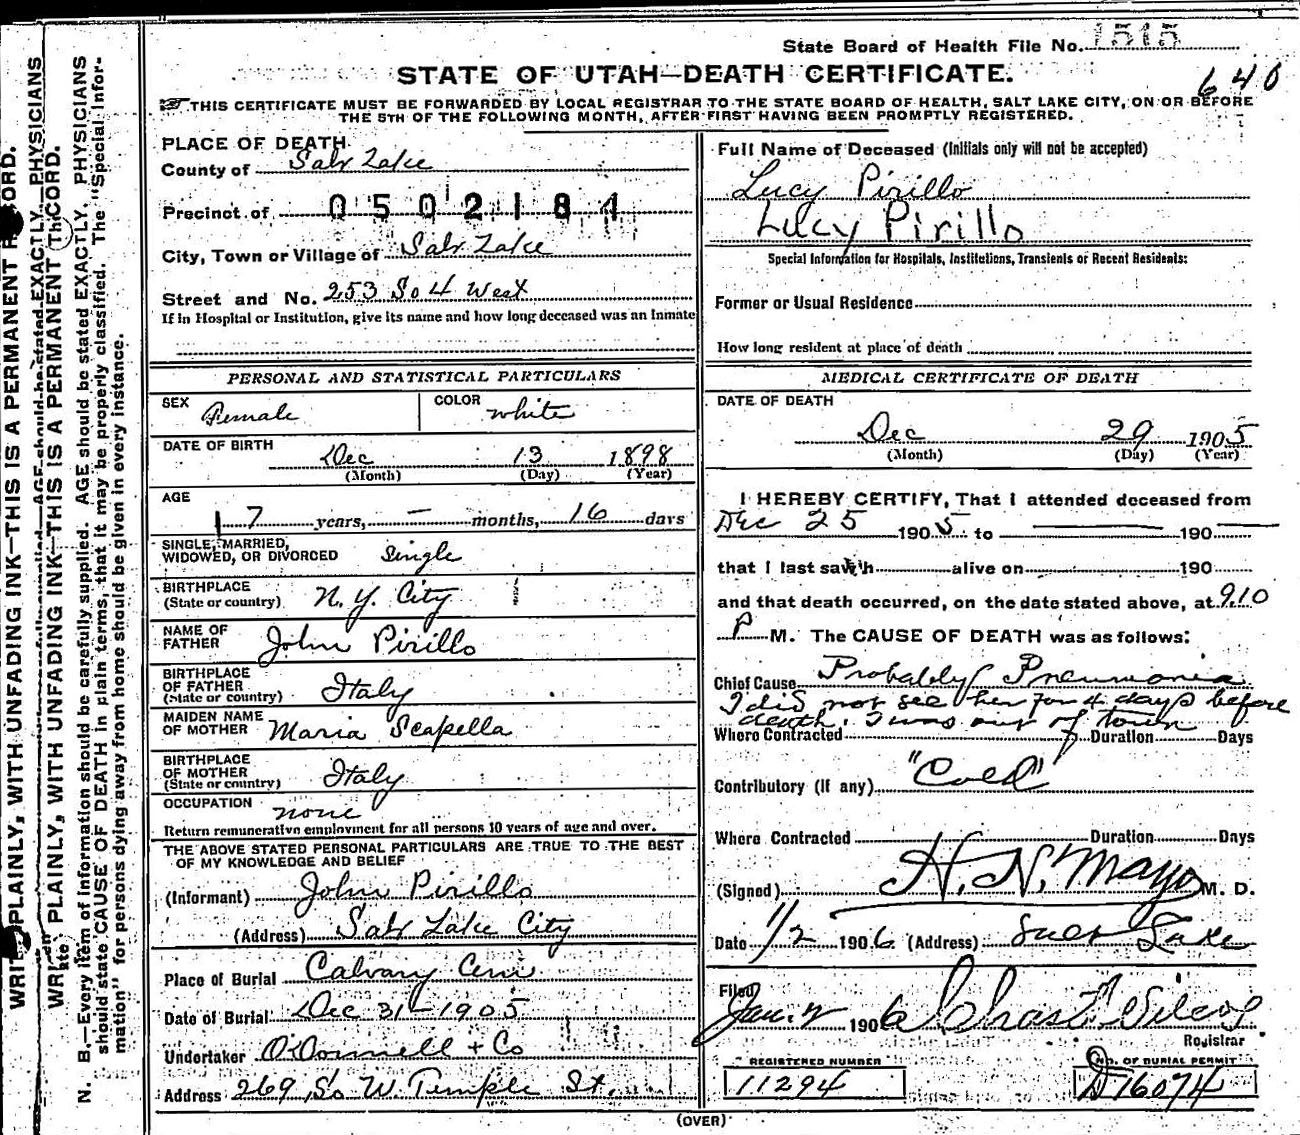 State Board of Health File No. 1515
640
STATE OF UTAH—DEATH CERTIFICATE.
THIS CERTIFICATE MUST BE FORWARDED BY LOCAL REGISTRAR TO THE STATE BOARD OF HEALTH, SALT LAKE CITY, ON OR BEFORE
THE 5TH OF THE FOLLOWING MONTH, AFTER FIRST HAVING BEEN PROMPTLY REGISTERED.
PLACE OF DEATH
County of Salt Lake
Precinct of 0502184
City, Town or Village of Salt Lake
Street and No. 253 So 4 West
If in Hospital or Institution, give its name and how long deceased was an Inmate
PERSONAL AND STATISTICAL PARTICULARS
SEX Female COLOR white
DATE OF BIRTH Dec 13 1898
(Month) (Day) (Year)
AGE
7 years, — months, 16 days
SINGLE, MARRIED,
WIDOWED, OR DIVORCED single
BIRTHPLACE
(State or country) N.Y. City
NAME OF
FATHER John Pirillo
BIRTHPLACE
OF FATHER
(State or country) Italy
MAIDEN NAME
OF MOTHER Maria Scapella
BIRTHPLACE
OF MOTHER
(State or country) Italy
OCCUPATION none
Return remunerative employment for all persons 10 years of age and over.
THE ABOVE STATED PERSONAL PARTICULARS ARE TRUE TO THE BEST
OF MY KNOWLEDGE AND BELIEF
(Informant) John Pirillo
(Address) Salt Lake City
Place of Burial Calvary Cem
Date of Burial Dec 31—1905
Undertaker O'Donnell + Co
Address 269 So W. Temple St.
Full Name of Deceased (Initials only will not be accepted)
Lucy Pirillo
Lucy Pirillo
Special Information for Hospitals, Institutions, Transients or Recent Residents:
Former or Usual Residence
How long resident at place of death
MEDICAL CERTIFICATE OF DEATH
DATE OF DEATH
Dec 29 1905
(Month) (Day) (Year)
I HEREBY CERTIFY, That I attended deceased from
Dec 25 1905 to 190
that I last saw h alive on 190
and that death occurred, on the date stated above, at 9.10
P M. The CAUSE OF DEATH was as follows:
Chief Cause Probably Pneumonia
I did not see her for 4 days before
death. I was out of town
Where Contracted Duration Days
Contributory (if any) "Cold"
Where Contracted Duration Days
(Signed) H. N. Mayo M. D.
Date 1/2 1906 (Address) Salt Lake
Filed Jan. 2 1906 Chas. Wilcox
Registrar
REGISTERED NUMBER
11294
NO. OF BURIAL PERMIT
D 16074
(OVER)
WRITE PLAINLY, WITH UNFADING INK—THIS IS A PERMANENT RECORD.
WRITE PLAINLY, WITH UNFADING INK—THIS IS A PERMANENT RECORD.
N. B.—Every item of information should be carefully supplied. AGE should be stated EXACTLY. PHYSICIANS
should state CAUSE OF DEATH in plain terms, that it may be properly classified. The "Special Infor-
mation" for persons dying away from home should be given in every instance.